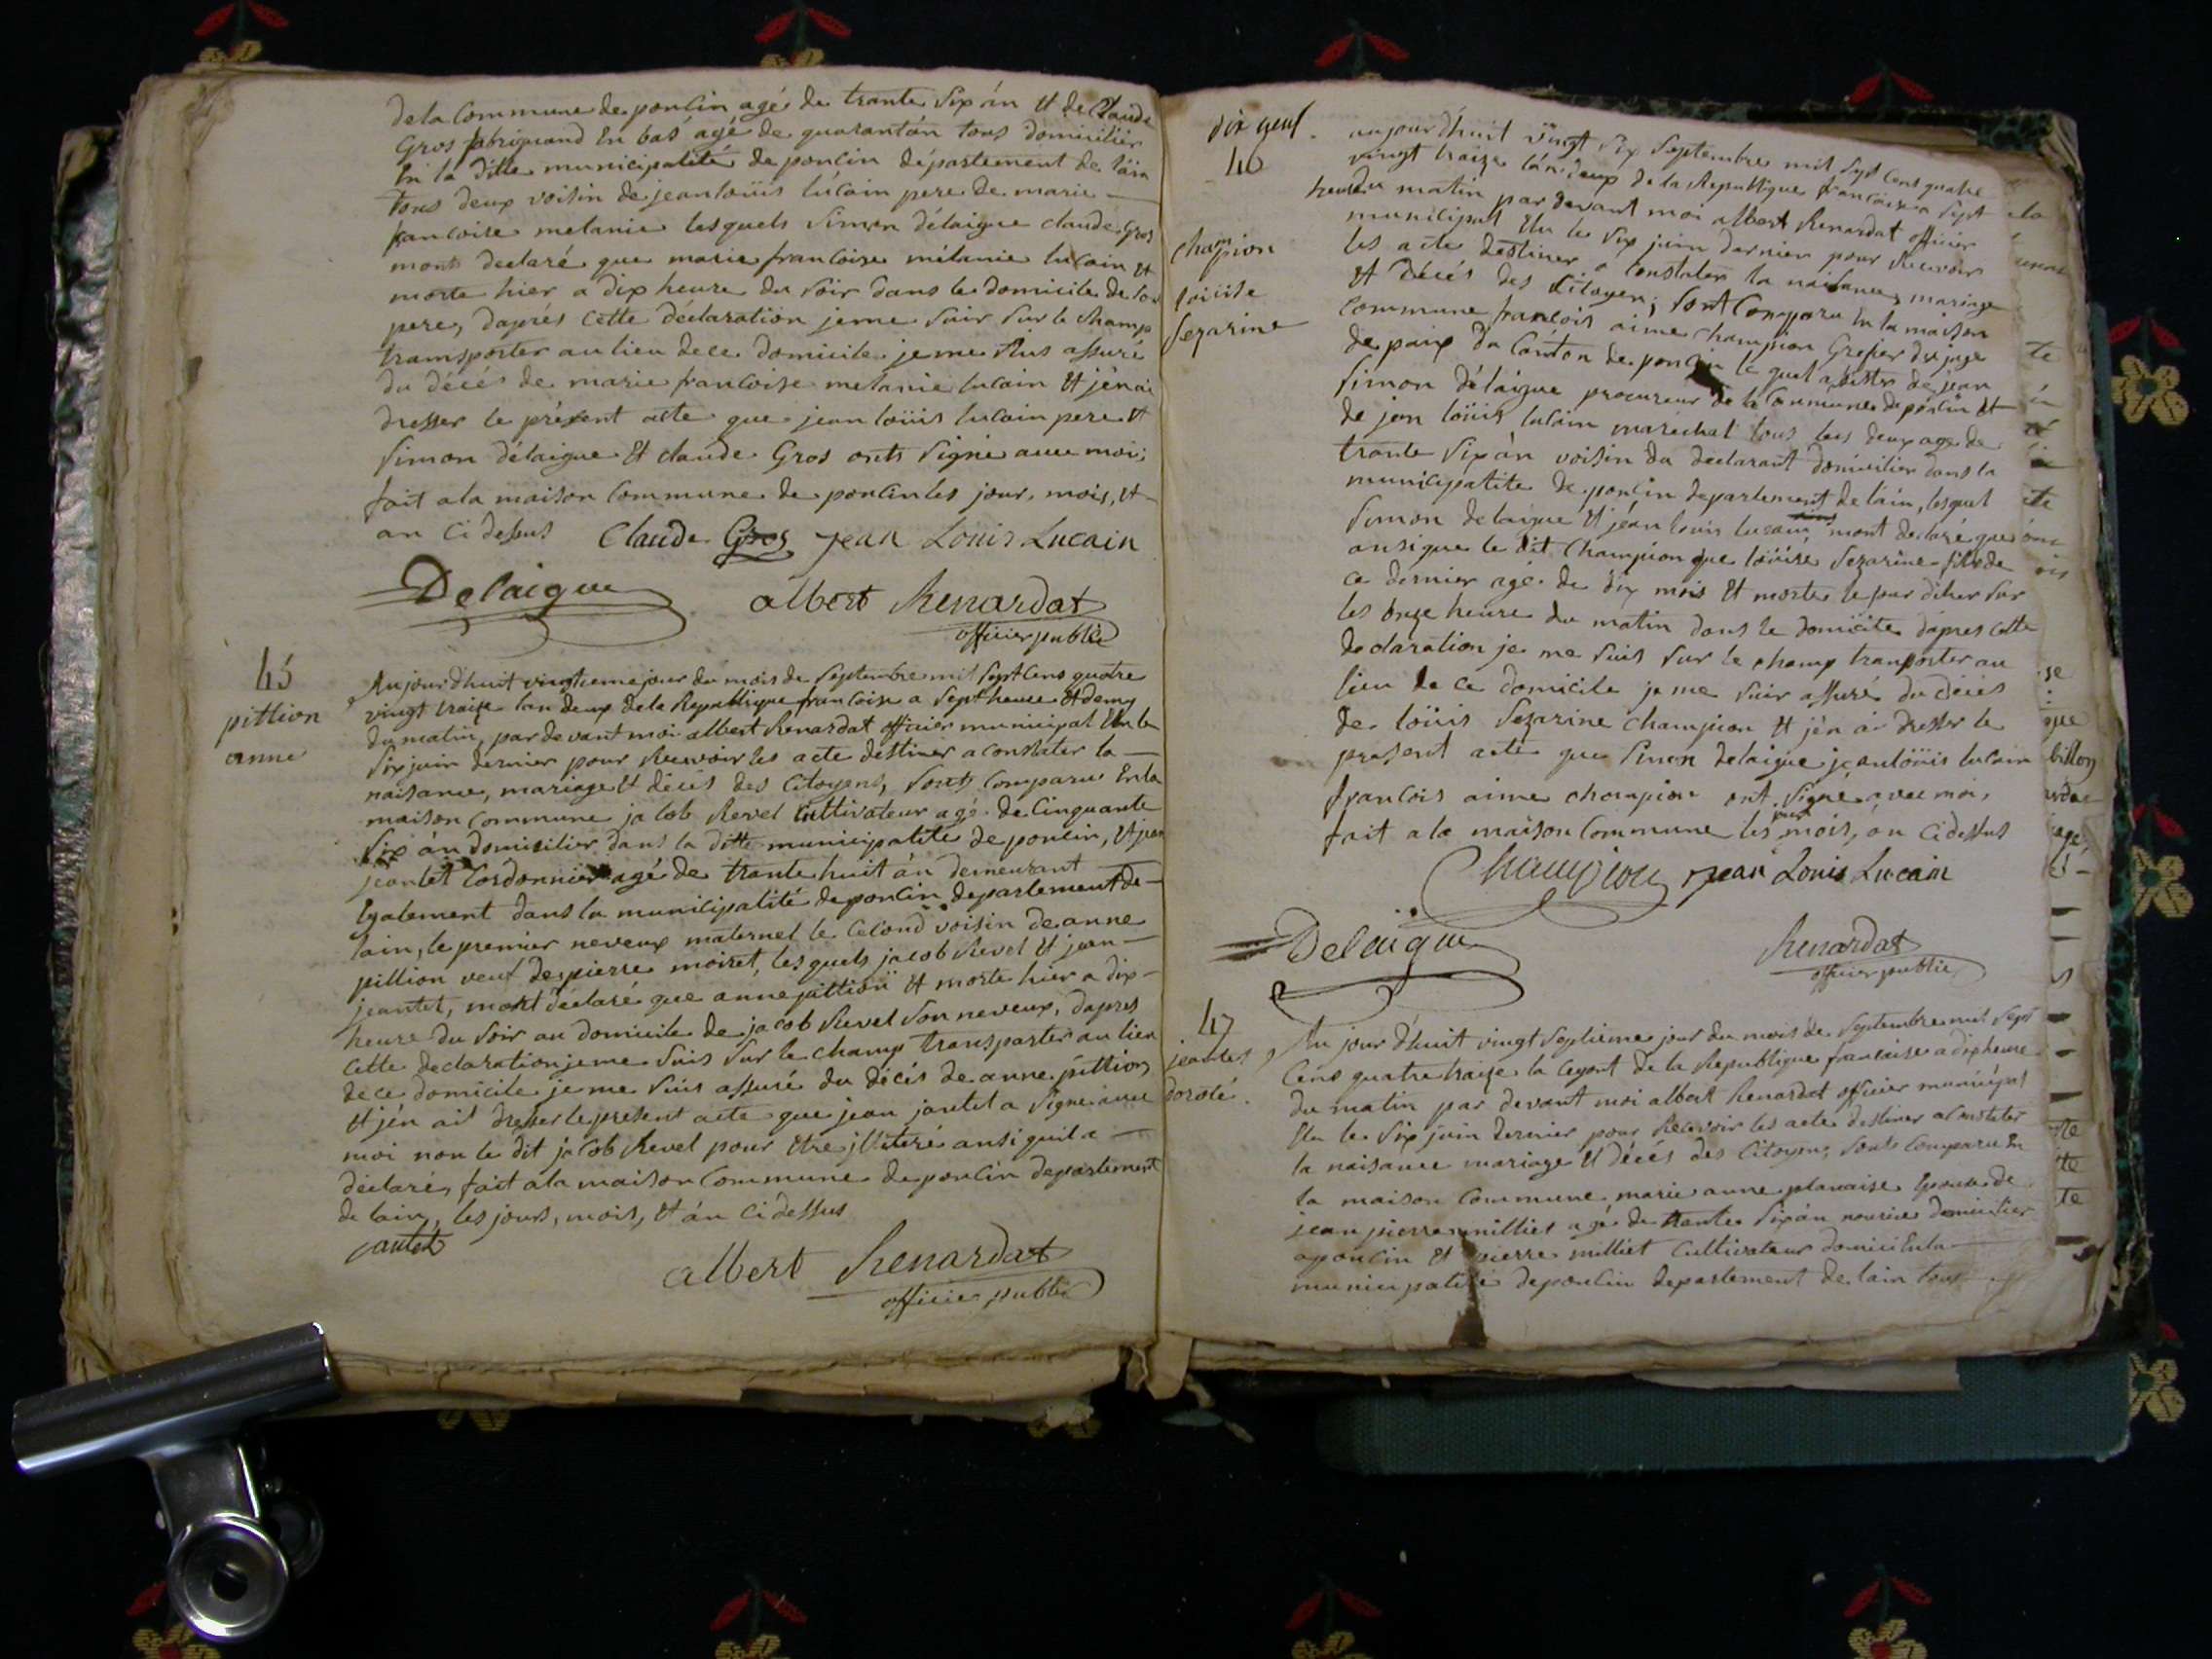 dela Commune de poncin agé de trante Six án Et de Claude
Gros fabriquand En bas agé de quarantán tous domicilier
En la ditte municipalité de poncin département de láin
tous deux voisin de jean loüis lucain pere de marie
francoise melanie lesquels Simon délaigue claude Gros
mont declaré que marie francoise mélanie lucain Et
morte hier a dix heure du Soir dans le domicile de Son
pere, daprés cette déclaration jeme Suir Sur le Champ
transporter au lieu dece domicile je me Suis assuré
du décé de marie francoise melanie lucain Et jénai
dresser le présent acte que jean loüis lucain pere Et
Simon délaigue Et claude Gros onts Signé avec moi;
fait ala maison Commune de poncin les jour, mois, Et
an Ci dessus Claude Gros jean Louis Lucain
Delaigue albert Renardat
officier public
45
pittion
anne
Aujourdhuit vingtiemejour du mois de Septembre mil Sept Cens quatre
vingt traize lan deux dela Republique francoise a Sept heure Et demy
du matin, par devant moi albert Renardat officier municipal Elu le
Six juin dernier pour Recevoir les acte déstiner a Constater la
naisance, mariage Et décés des Citoyens, Sonts Comparus Enla
maison Commune jacob Revel Cultivateur agé de Cinquante
Six án domicilier dans la ditte municipalité de poncin, Et jean
jeantet Cordonnier agé de trante huit án demeurant
Egalement dans la municipalité de poncin departement de
lain, le premier neveux maternel le Cecond voisin de anne
pittion veuf de pierre moiret, lesquels jacob Revel Et jean
jeantet, mont déclaré que anne pittion Et morte hier a dix
heure du Soir au domicile de jacob Revel Son neveux, dapres
Cette declaration jeme Suis Sur le champ transporter au lieu
de ce domicile je me Suis assuré du décés de anne pittion
Et jén ait dresser le present acte que jean jantet a Signé avec
moi non le dit jacob Revel pour Etre jlliteré ansi quil a
déclaré, fait ala maison Commune de poncin departement
de lain, les jours, mois, Et án Ci déssus
jantet
albert Renardat
officier public
dix neuf
46
champion
loüise
Sezarine
aujourdhuit vingt Six Septembre mil Sept Cens quatre
vingt traize lán deux de la Republique francaise a Sept
heure du matin par devant moi albert Renardat officier
municipal Elu le Six juin dernier pour Recevoir
les acte destiner a Constater la naisance, mariage
Et décés des Citoyen, Sont Comparu En la maison
Commune francois aime champion Grefier du juge
de paix du Canton de poncin le quel assister de jean
Simon délaigue procureur de la Commune de poncin Et
de jean loüis lucain maréchal tous les deux agé de
trante Six án voisin du declarant domicilier dans la
municipalite de poncin departement de lain, lesquel
Simon delaigue Et jéan louis lucain mont declaré que
ansi que le dit champion que loüise Sezarine fille de
ce dernier agé de dix mois Et morte le jour dhier Sur
les onze heure du matin dans le domicile dapres cette
declaration je me Suis Sur le champ tranporter au
lieu de ce domicile je me Suir assuré du décés
de loüis Sezarine champion Et jén ai dresser le
present acte que Simon delaigue jeanloüis lucain
francois aime champion ont Signé avec moi,
fait a la maison Commune les jour mois, án Cidessus
Champion jean Louis Lucain
Delaigue
Renardat
officier public
47
jeantet
doroté
Au jour dhuit vingt Septieme jour du mois de Septembre mil Sept
Cens quatre traize la Cegont de la Republique francaise a dix heure
du matin par devant moi albert Renardat officier municipal
Elu le Six juin dernier pour Recevoir les acte destiner a Constater
la naisance mariage Et décés des Citoyens, Sont Comparu En
la maison Commune, marie anne planaise Epouse de
jean pierre milliet agé de trante Six án nourice domicilier
a poncin Et pierre milliet Cultivateur domici Enla
municipalité de poncin departement de lain tous